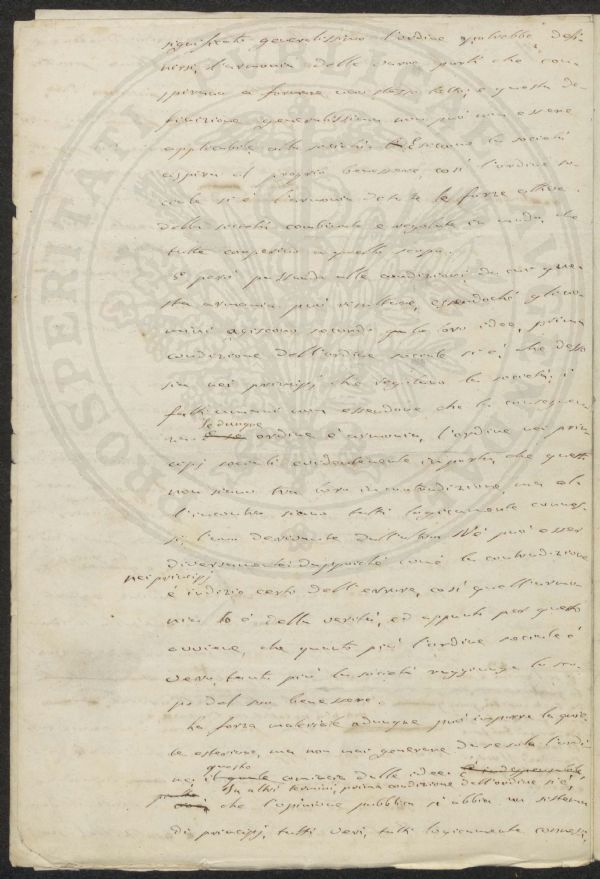 significato generalissimo l'ordine potrebbe defi-
nirsi, l'armonia delle varie parti che cos-
pirano a formare uno stesso tutto; e questa de-
finizione generalissima non può non essere
applicabile alla società. Siccome la società
aspira al proprio benessere, così l'ordine so-
ciale si è l'armonia di tutte le forze attive
della società combinate e regolate in modo, che
tutte cooperino a quello scopo.
E però passando alle condizioni, da cui que-
sta armonia può risultare, essendoché gli uo-
mini agiscono secondo le loro idee, prima
condizione dell'ordine sociale si è, che desso
sia nei principj che reggono la società; i
fatti umani non essendone che la conseguen-
za. Se dunque ordine è armonia, l'ordine nei prin-
cipj sociali evidentemente importa, che questi
non siano tra loro in contraddizione, ma al-
l'incontro siano tutti logicamente connes-
si, l'uno derivante dall'altro. Nè può esser
diversamente; dappoiché come la contraddizione
nei principj
è indizio certo dell'errore, così quell'armo-
nia lo è della verità, ed appunto per questo
avviene, che quanto più l'ordine sociale è
vero, tanto più la società raggiunge lo sco-
po del suo benessere.
La forza materiale adunque può imporre la quie-
te esteriore, ma non mai generare da se sola l'ordi-
ne; questo comincia dalle idee.
In altri termini, prima condizione dell'ordine si è,
che l'opinione pubblica si abbia un sistema
di principj, tutti veri, tutti logicamente connessi,
PROSPERITATI